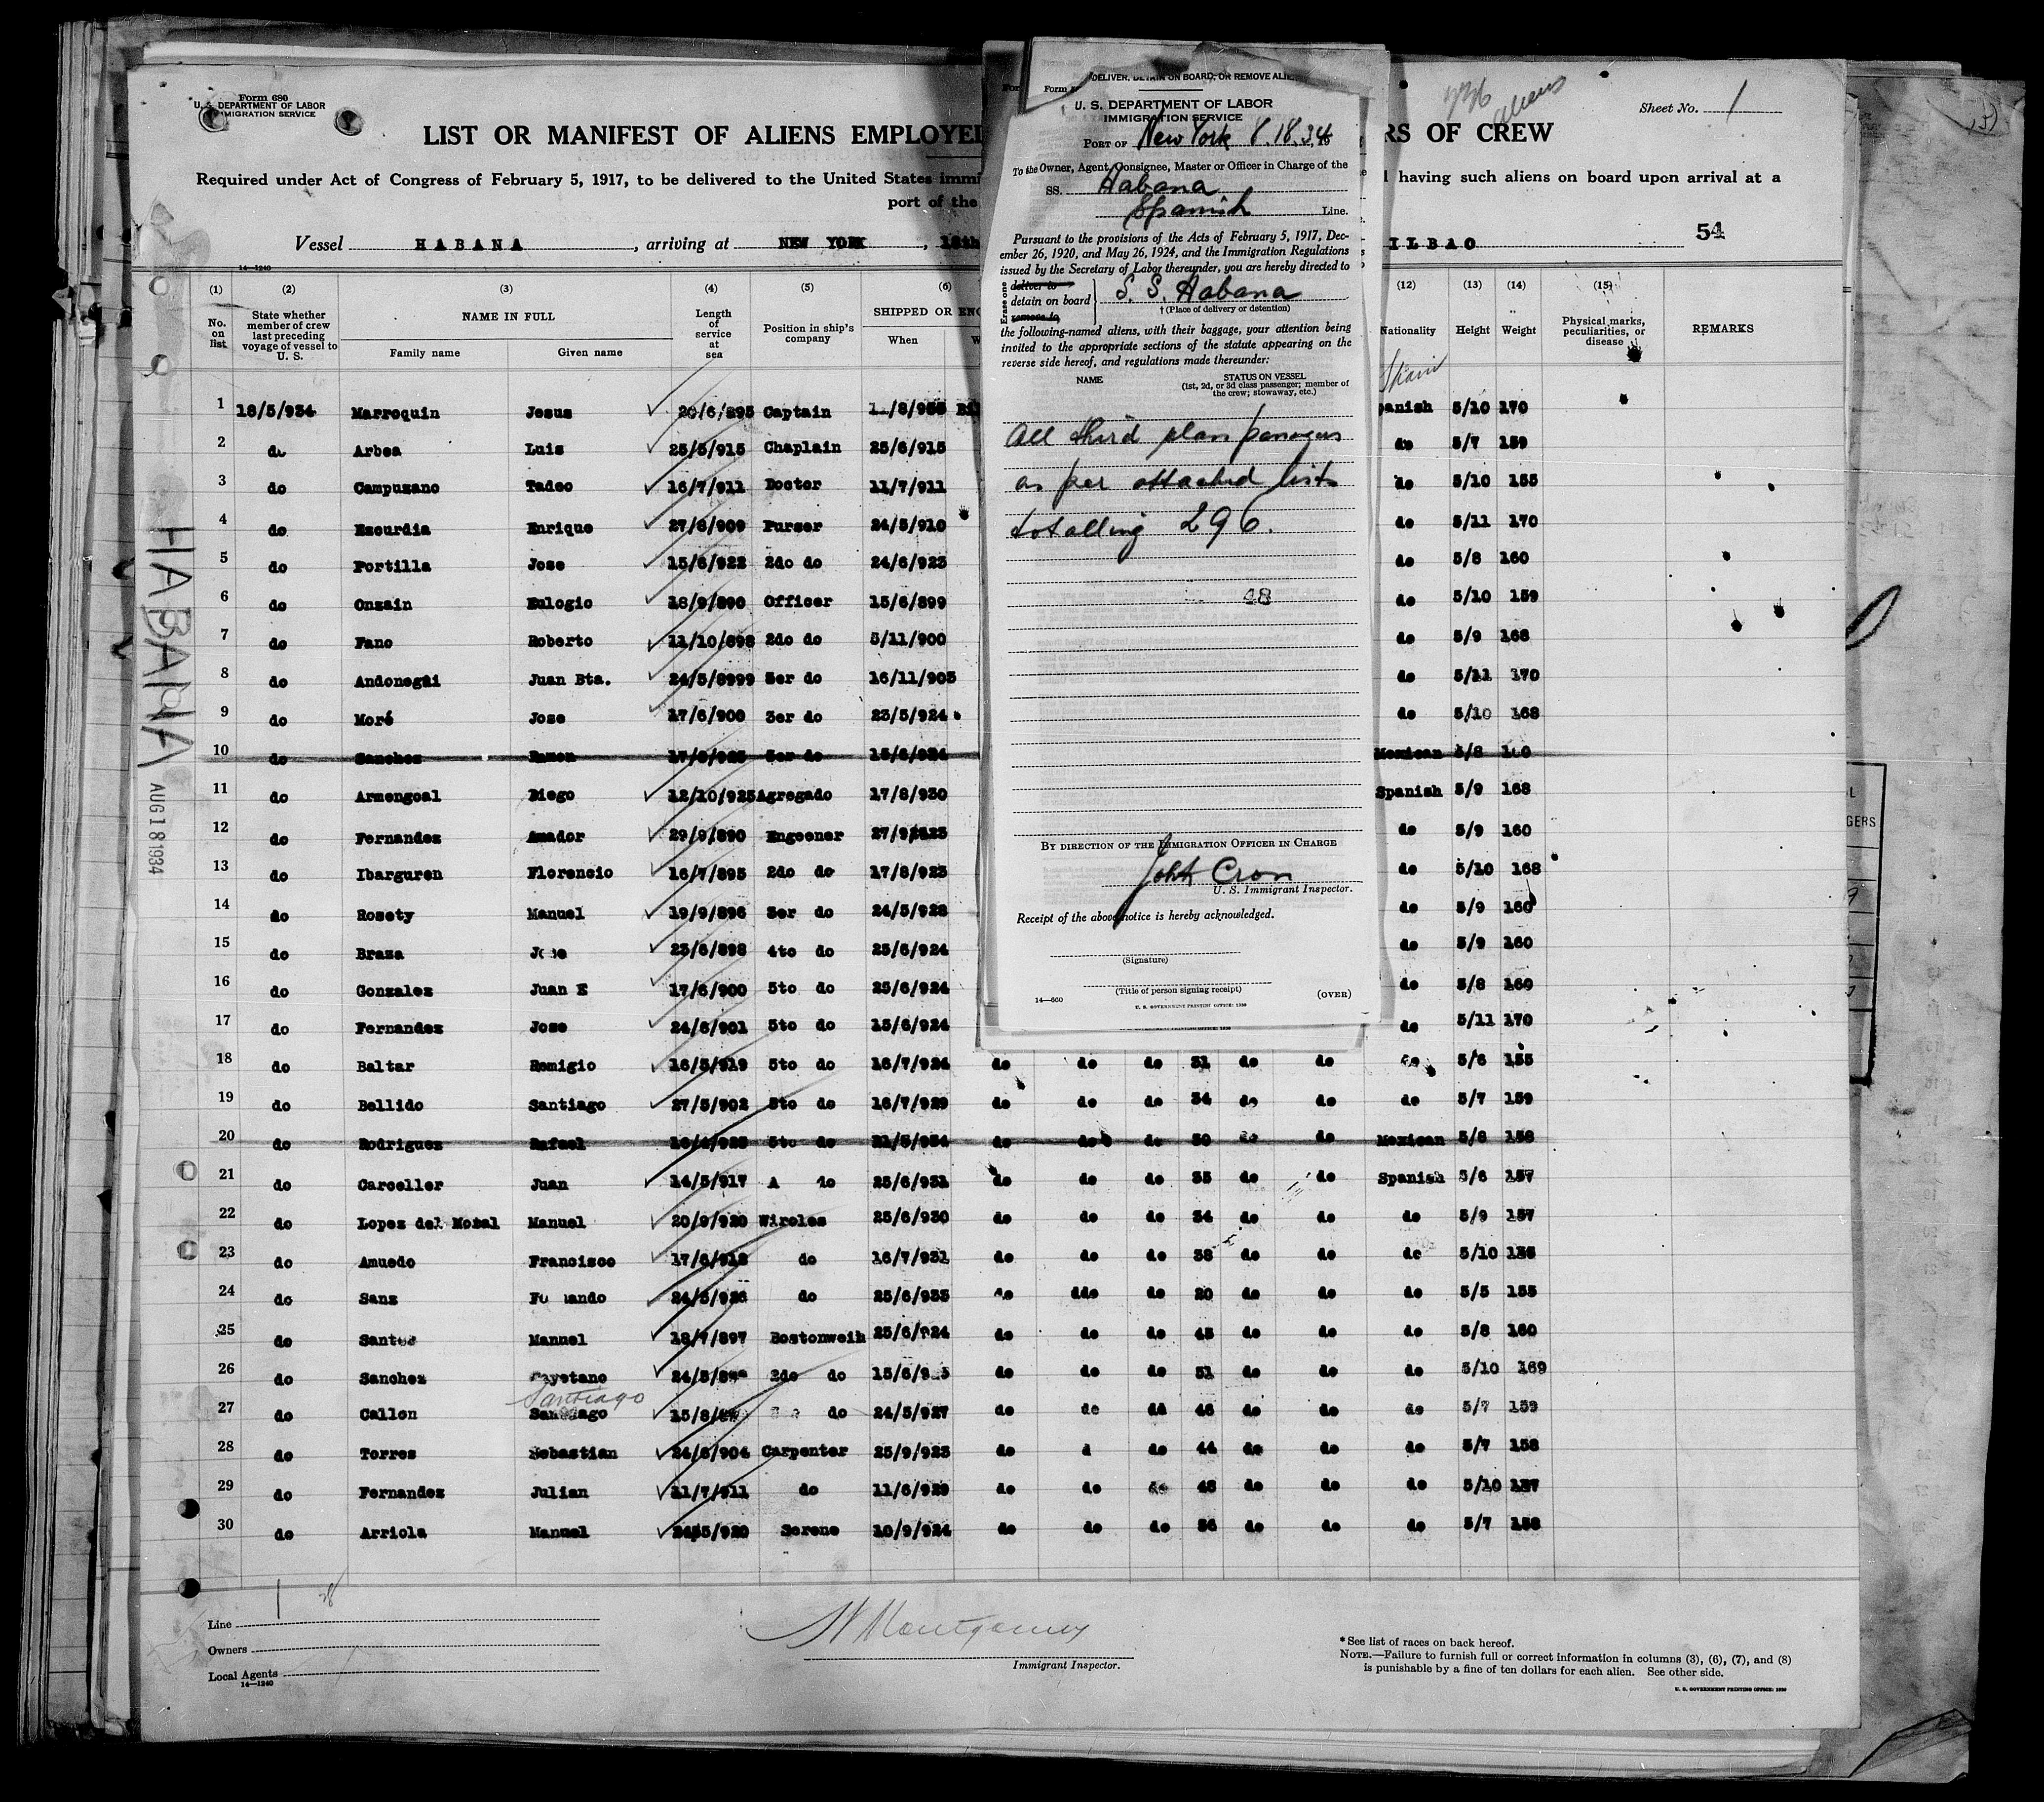 Form 680
U. S. DEPARTMENT OF LABOR
IMMIGRATION SERVICE
Sheet No. 1
aliens
LIST OR MANIFEST OF ALIENS EMPLOYE RS OF CREW
Required under Act of Congress of February 5, 1917, to be delivered to the United States immi having such aliens on board upon arrival at a
port of the
Vessel HABANA, arriving at NEW YORK, 18th ILBAO 54
14—1240
(1) (2) (3) (4) (5) (6) (12) (13) (14) (15)
No. on list
State whether member of crew last preceding voyage of vessel to U. S.
NAME IN FULL
Family name Given name
Length of service at sea
Position in ship's company
SHIPPED OR ENG
When
Nationality Height Weight
Physical marks, peculiarities, or disease
REMARKS
Spain
1 18/5/934 Marroquin Jesus 20/6/895 Captain panish 5/10 170
2 do Arbea Luis 25/5/915 Chaplain 25/6/915 do 5/7 159
3 do Campuzano Tadeo 16/7/911 Doctor 11/7/911 do 5/10 155
4 do Ezcurdia Enrique 27/8/909 Purser 24/5/910 do 5/11 170
5 do Portilla Jose 15/6/922 2do do 24/6/923 do 5/8 160
6 do Onzain Eulogio 18/9/890 Officer 15/6/899 do 5/10 159
7 do Fano Roberto 11/10/898 2do do 5/11/900 do 5/9 168
8 do Andonegui Juan Bta. 24/5/8999 3er do 16/11/903 do 5/11 170
9 do Moré Jose 17/6/900 3er do 23/5/924 do 5/10 168
10 do Sanchez Ramon 3er do 15/6/924 Mexican 5/8 160
11 do Armengoal Diego 12/10/923 Agregado 17/8/930 Spanish 5/9 168
12 do Fernandez Amador 29/9/890 Engeener do 5/9 160
13 do Ibarguren Florencio 16/7/895 2do do 17/8/923 do 5/10 168
14 do Rosety Manuel 19/9/896 3er do 24/5/928 do 5/9 160
15 do Braza 23/6/898 4to do 25/6/924 do 5/9 160
16 do Gonzalez Juan E 17/6/900 5to do 25/6/924 do 5/8 160
17 do Fernandez Jose 24/6/901 5to do 15/6/924 do 5/11 170
18 do Baltar Remigio 16/5/919 5to do 16/7/924 do do do 31 do do do 5/6 155
19 do Bellido Santiago 27/5/902 5to do 16/7/929 do do do 34 do do do 5/7 159
20 do Rodriguez Rafael 5to do 21/5/934 do do do 30 do do Mexican 5/8 158
21 do Carceller Juan 14/5/917 A do 25/6/931 do do do 35 do do Spanish 5/6 157
22 do Lopez del Moral Manuel 20/9/920 Wireles 25/6/930 do do do 34 do do do 5/9 157
23 do Amuedo Francisco 17/6/918 do 16/7/931 do do do 38 do do do 5/10
24 do Sanz 24/5/926 do 25/6/933 do ddo do 20 do do do 5/5 155
25 do Santos Manuel 18/7/897 Bostonweih 25/6/924 do do do 45 do do do 5/8 160
26 do Sanchez Cayetano 2do do do do do 51 do do do 5/10 169
Santiago
27 do Callen Santiago do 24/5/927 do do do 46 do do do 5/7 159
28 do Torres Sebastian 24/6/904 Carpenter 25/9/923 do d do 44 do do do 5/7 158
29 do Fernandez Julian 11/7/911 do 11/6/929 do do do 46 do do do 5/10 157
30 do Arriola Manuel Serene 10/9/924 do do do 36 do do do 5/7 158
HABANA
AUG 18 1934
DELIVER, DETAIN ON BOARD, OR REMOVE ALIE
Form
U. S. DEPARTMENT OF LABOR
IMMIGRATION SERVICE
PORT OF New York 8.18.34
To the Owner, Agent, Consignee, Master or Officer in Charge of the
SS. Habana
Spanish Line.
Pursuant to the provisions of the Acts of February 5, 1917, Dec-
ember 26, 1920, and May 26, 1924, and the Immigration Regulations
issued by the Secretary of Labor thereunder, you are hereby directed to
Erase one
deliver to
detain on board S. S. Habana
remove to
† (Place of delivery or detention)
the following-named aliens, with their baggage, your attention being
invited to the appropriate sections of the statute appearing on the
reverse side hereof, and regulations made thereunder:
NAME STATUS ON VESSEL
(1st, 2d, or 3d class passenger; member of
the crew; stowaway, etc.)
All third
as per attached lists
totalling 296.
48
BY DIRECTION OF THE IMMIGRATION OFFICER IN CHARGE
John Cron
U. S. Immigrant Inspector.
Receipt of the above notice is hereby acknowledged.
(Signature)
(Title of person signing receipt)
14—660 (OVER)
U. S. GOVERNMENT PRINTING OFFICE: 1930
Line
Owners
Local Agents
14—1240
Montgomery
Immigrant Inspector.
* See list of races on back hereof.
NOTE.—Failure to furnish full or correct information in columns (3), (6), (7), and (8)
is punishable by a fine of ten dollars for each alien. See other side.
U. S. GOVERNMENT PRINTING OFFICE: 1930
GERS